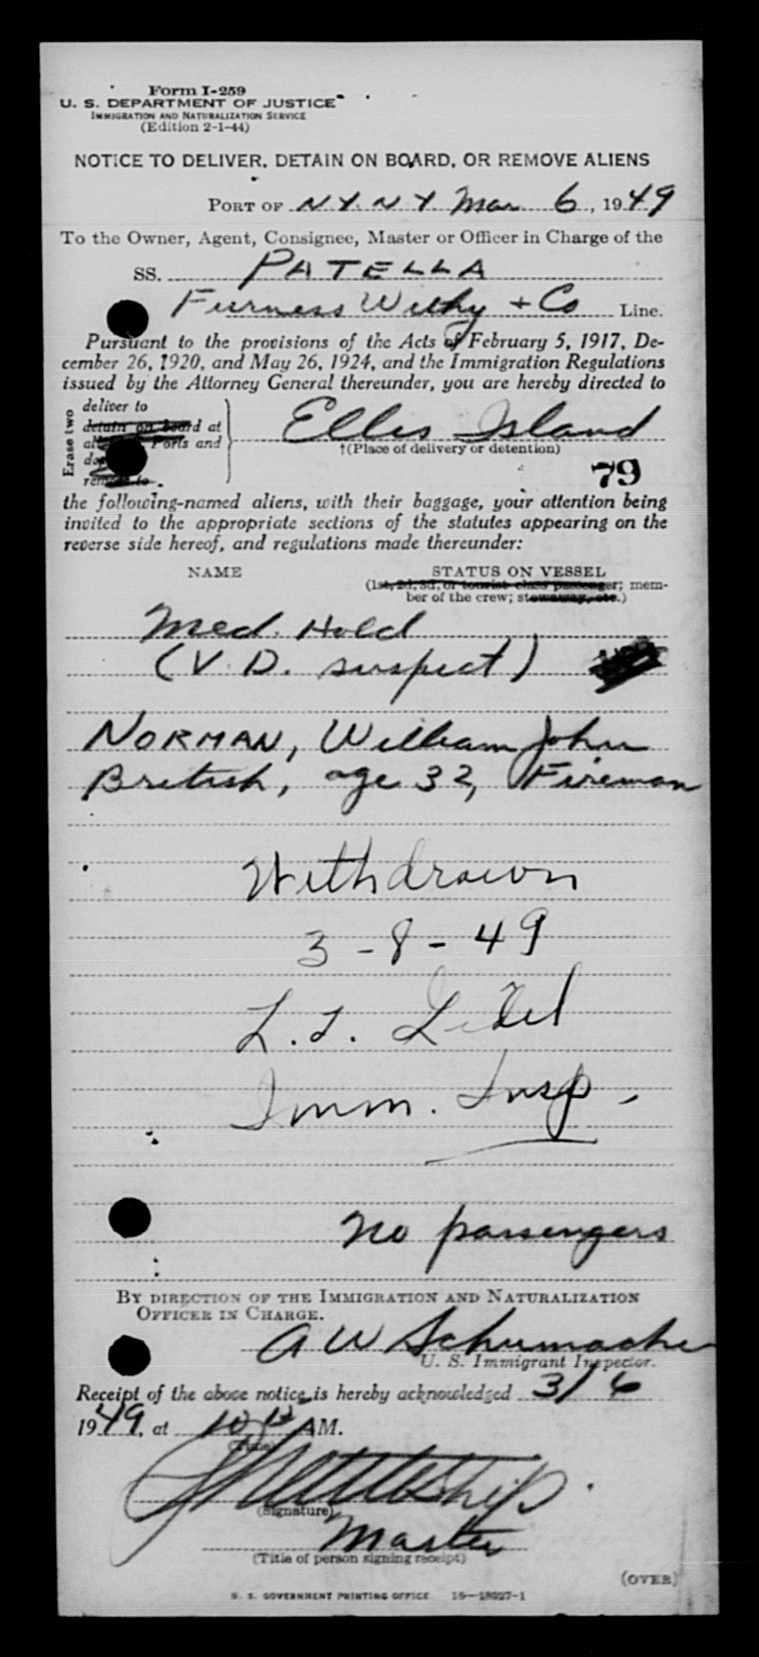 Form I-259
U. S. DEPARTMENT OF JUSTICE
IMMIGRATION AND NATURALIZATION SERVICE
(Edition 2-1-44)
NOTICE TO DELIVER, DETAIN ON BOARD, OR REMOVE ALIENS
PORT OF N.Y. N.Y. Mar 6, 1949
To the Owner, Agent, Consignee, Master or Officer in Charge of the
SS. PATELLA
Furness Withy + Co Line.
Pursuant to the provisions of the Acts of February 5, 1917, De-
cember 26, 1920, and May 26, 1924, and the Immigration Regulations
issued by the Attorney General thereunder, you are hereby directed to
Erase two
deliver to
detain on board at
Ports and
remove to
Ellis Island
†(Place of delivery or detention)
79
the following-named aliens, with their baggage, your attention being
invited to the appropriate sections of the statutes appearing on the
reverse side hereof, and regulations made thereunder:
NAME STATUS ON VESSEL
(1st, 2d, 3d, or tourist class passenger; mem-
ber of the crew; stowaway, etc.)
Med. Hold
(V.D. suspect)
NORMAN, William John
British, age 32, Fireman
Withdrawn
3-8-49
Imm. Insp.
No passengers
BY DIRECTION OF THE IMMIGRATION AND NATURALIZATION
OFFICER IN CHARGE.
A W Schumacher
U. S. Immigrant Inspector.
Receipt of the above notice is hereby acknowledged 3/6
1949, at AM.
(Time)
(Signature)
Master
(Title of person signing receipt)
(OVER)
U. S. GOVERNMENT PRINTING OFFICE 16—18927-1